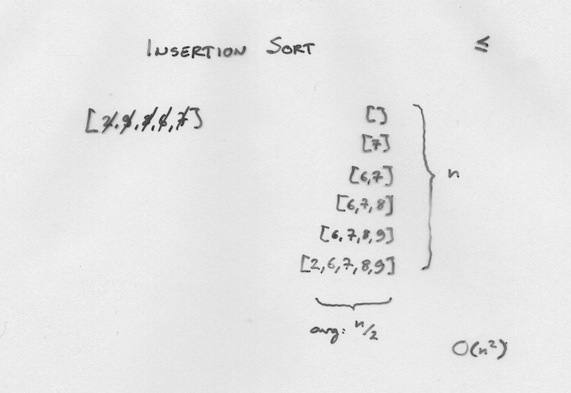 INSERTION SORT ≤
[2,9,8,6,7]
[]
[7]
[6,7]
[6,7,8]
[6,7,8,9]
[2,6,7,8,9]
n
avg: n/2
O(n²)